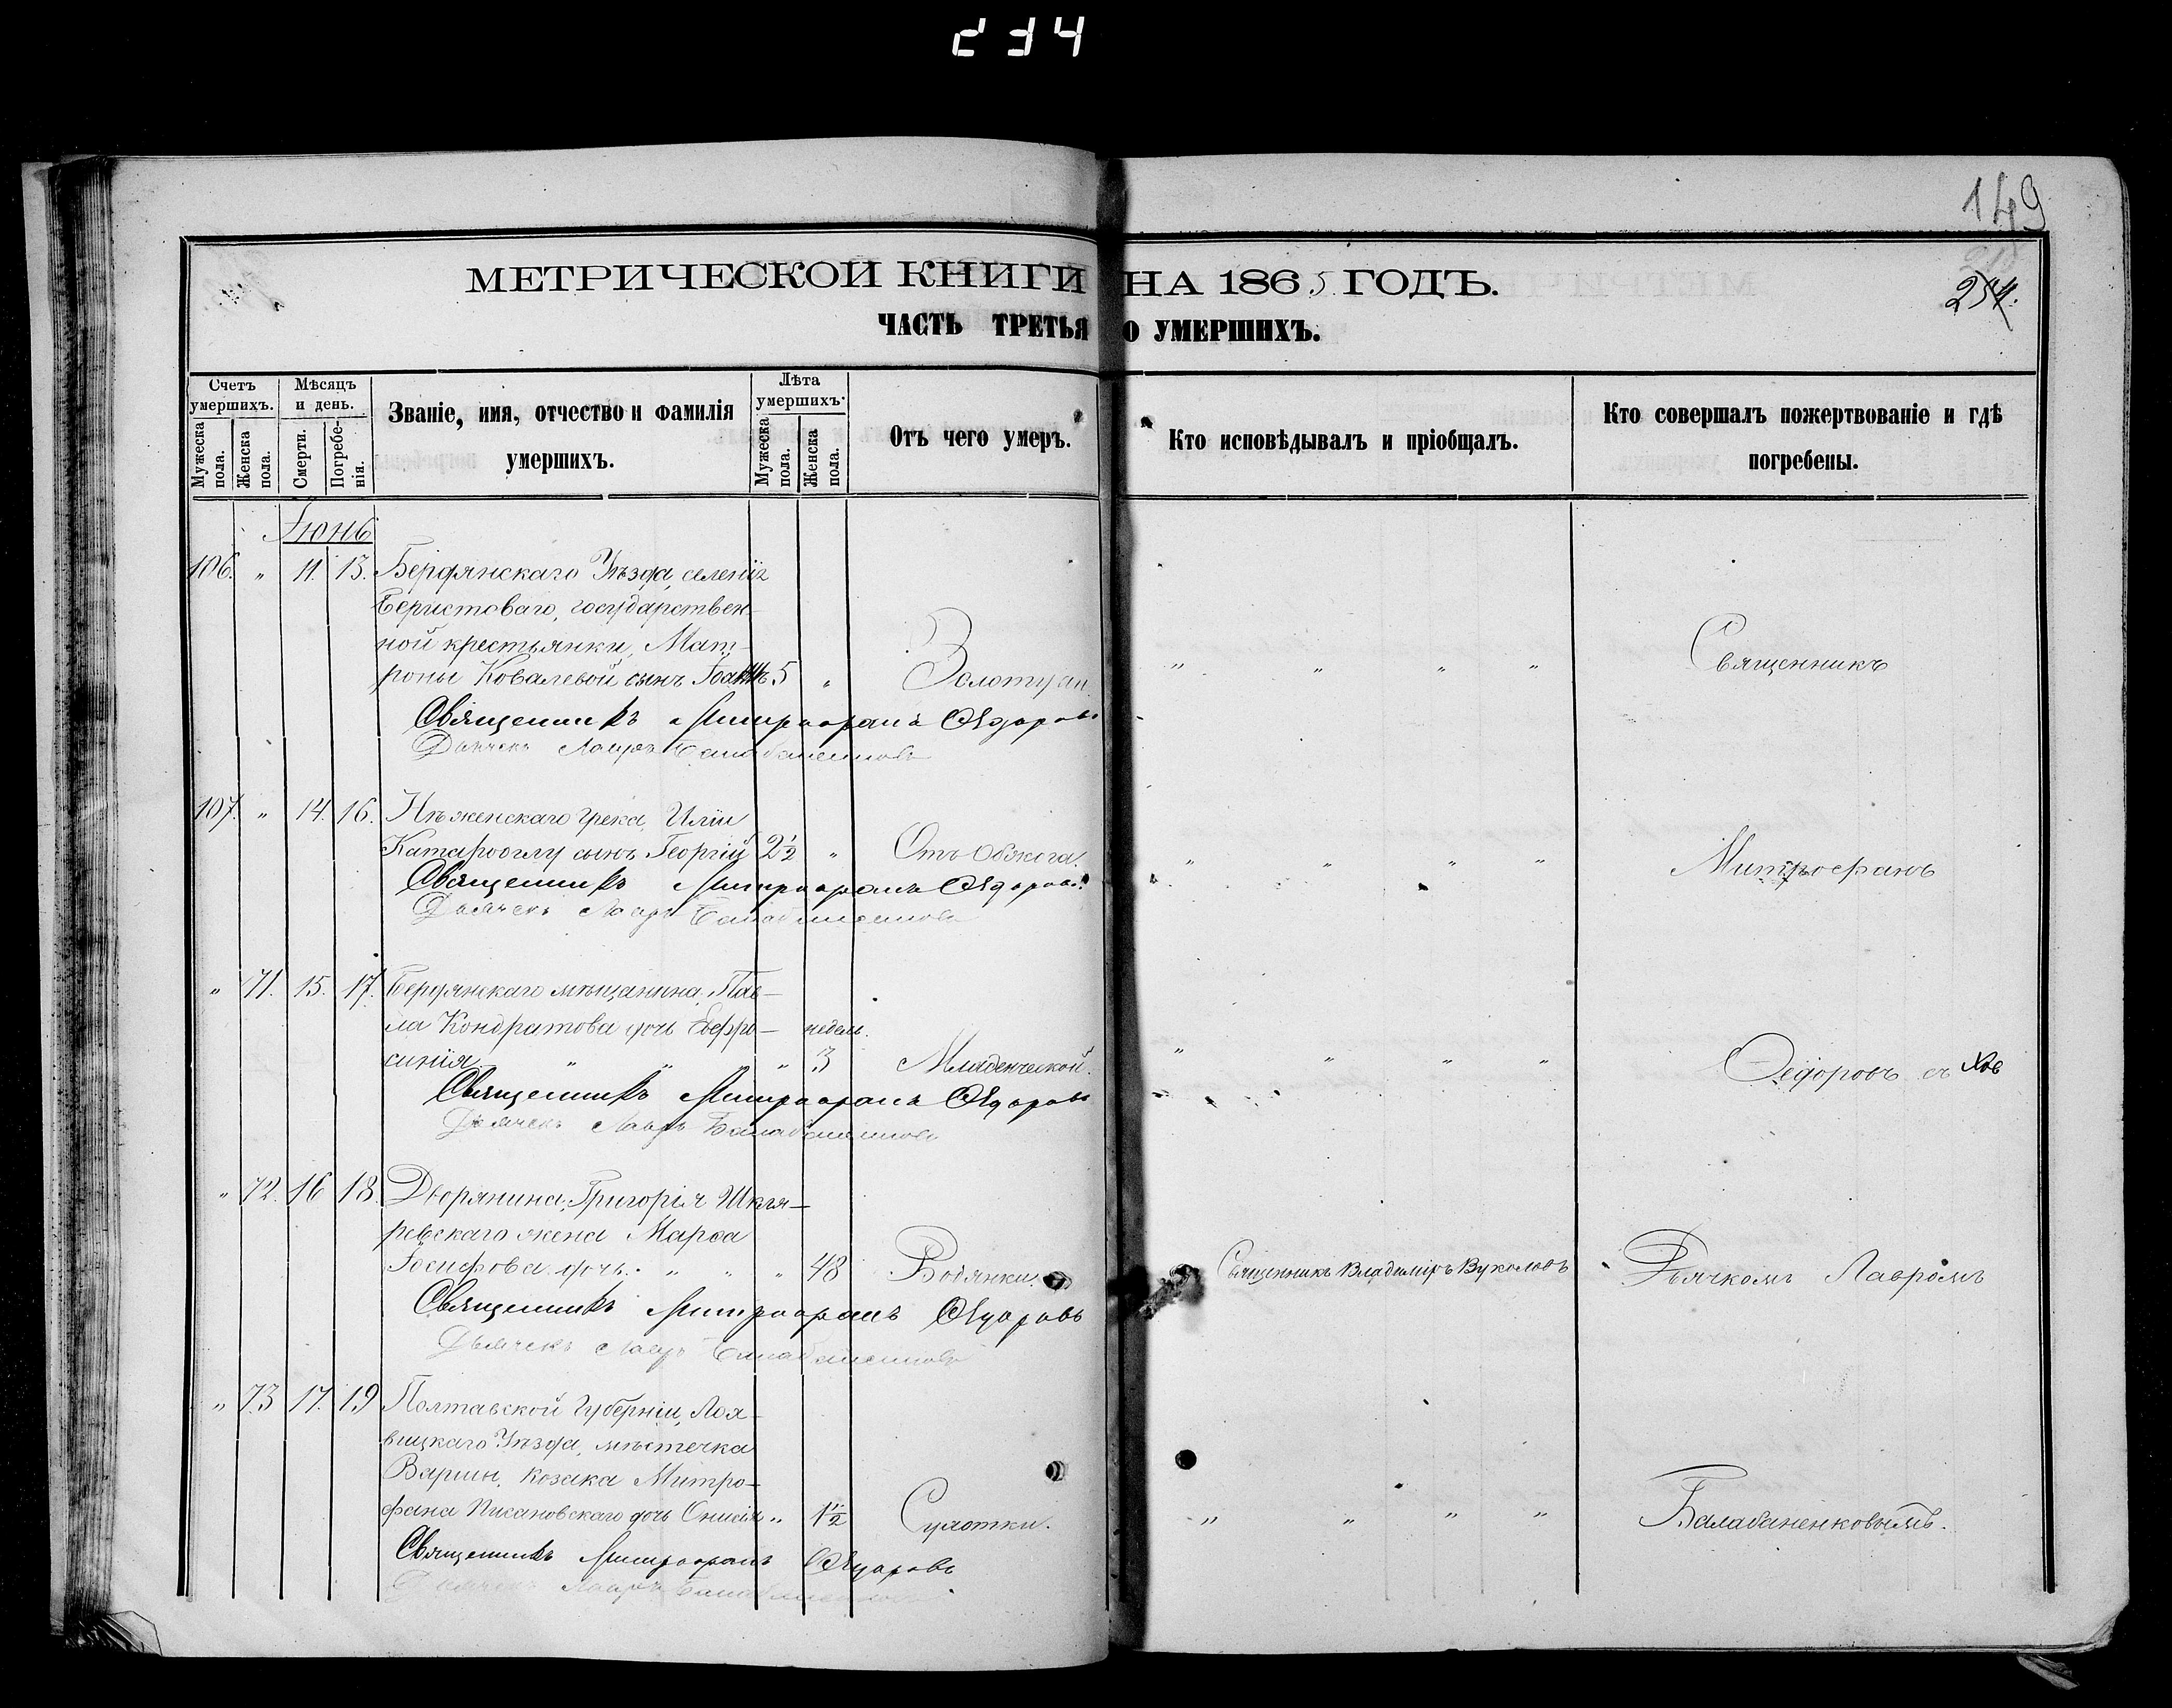 234
149
254.
МЕТРИЧЕСКОЙ КНИГИ НА 1865 ГОДЪ.
ЧАСТЬ ТРЕТЬЯ О УМЕРШИХЪ.
Счетъ умершихъ.
Мужеска пола.
Женска пола.
Мѣсяцъ и день.
Смерти.
Погребенія.
Званіе, имя, отчество и фамилія
умершихъ.
Лѣта умершихъ.
Мужеска пола.
Женска пола.
Отъ чего умеръ.
Кто исповѣдывалъ и пріобщалъ.
Кто совершалъ пожертвованіе и гдѣ
погребены.
Іюнь
106. " 11. 13. Бердянскаго Уѣзда, селенія
Берестоваго, государствен-
ной крестьянки, Мат-
роны Ковалевой сынъ Іоаннъ 5 " Золотухи. " " " " Священникъ
Священникъ Митрофанъ Ѳедоровъ
Дьячекъ Лавръ Балабаненковъ
107. " 14. 16. Нѣженскаго грека, Иліи
сынъ Георгій 2½ " Отъ обжога. " " " " Митрофанъ
Священникъ Митрофанъ Ѳедоровъ
Дьячекъ Лавръ Балабаненковъ
" 71. 15. 17. Бердянскаго мѣщанина, Пав-
ла Кондратова дочь Евфро- недель.
синія " " " 3 Младенческой. " " " " Ѳедоровъ съ
Священникъ Митрофанъ Ѳедоровъ
Дьячекъ Лавръ Балабаненковъ
" 72. 16 18. Дворянина, Григорія Шкля-
ревскаго жена Марѳа
Іосифова дочь. " " " 48 Водянки. Священникъ Владиміръ Вуколовъ Дьячкомъ Лавромъ
Священникъ Митрофанъ Ѳедоровъ
Дьячекъ Лавръ Балабаненковъ
" 73 17. 19 Полтавской Губерніи, Лох-
вицкаго Уѣзда, мѣстечка
Варвы, козака Митро-
фана Писановскаго дочь Онисія " 1½ Сухотки. " " " " Балабаненковымъ.
Священникъ Митрофанъ Ѳедоровъ
Дьячекъ Лавръ Балабаненковъ